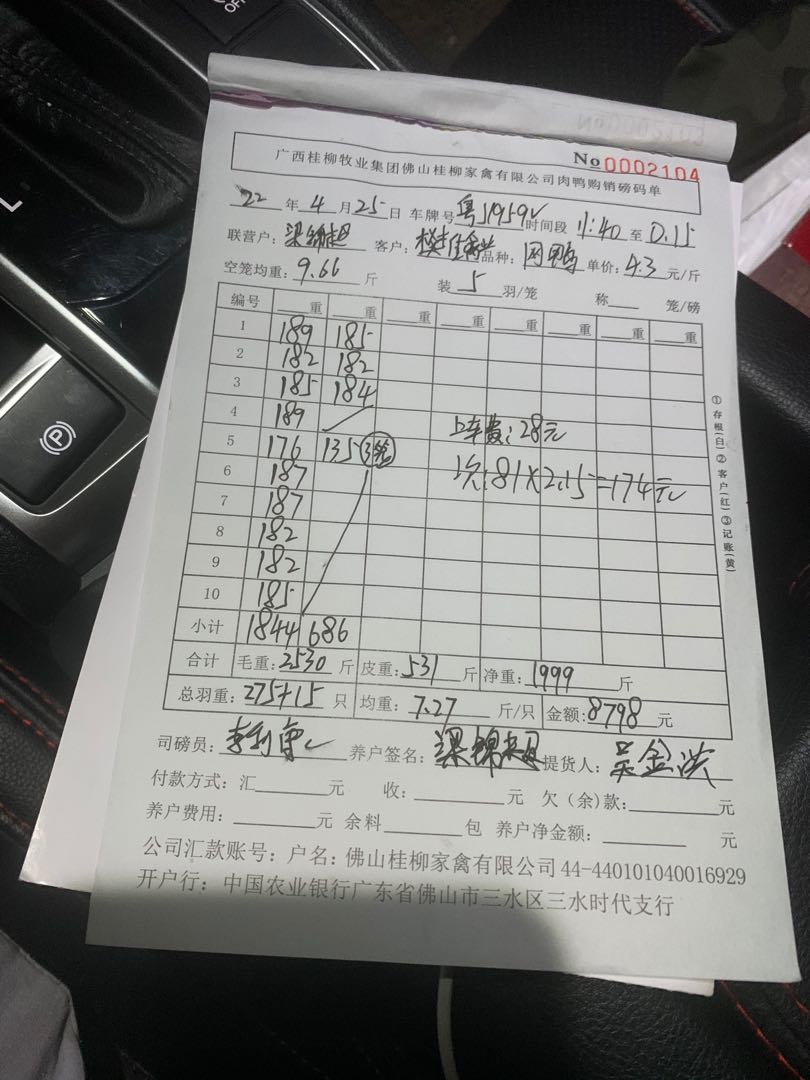 No 0002104
广西桂柳牧业集团佛山桂柳家禽有限公司肉鸭购销磅码单
22 年 4 月 25 日 车牌号 粤J1959V 时间段 11:40 至 0.15
联营户: 梁锦超 客户: 品种: 肉鸭 单价: 4.3 元/斤
空笼均重: 9.66 斤 装 5 羽/笼 称 笼/磅
编号 重 重 重 重 重 重 重 重
1 189 185
2 182 182
3 185 184
4 189 上车费: 28元
5 176 135 3笼
6 187 次: 81×2.15=174元
7 187
8 182
9 182
10 185
小计 1844 686
合计 毛重: 2530 斤 皮重: 531 斤 净重: 1999 斤
总羽重: 275+15 只 均重: 7.27 斤/只 金额: 8798 元
司磅员: 养户签名: 梁锦超 提货人: 吴金洪
付款方式: 汇 元 收: 元 欠(余)款: 元
养户费用: 元 余料 包 养户净金额: 元
公司汇款账号: 户名: 佛山桂柳家禽有限公司 44-440101040016929
开户行: 中国农业银行广东省佛山市三水区三水时代支行
①存根(白)②客户(红)③记账(黄)
P
OFF